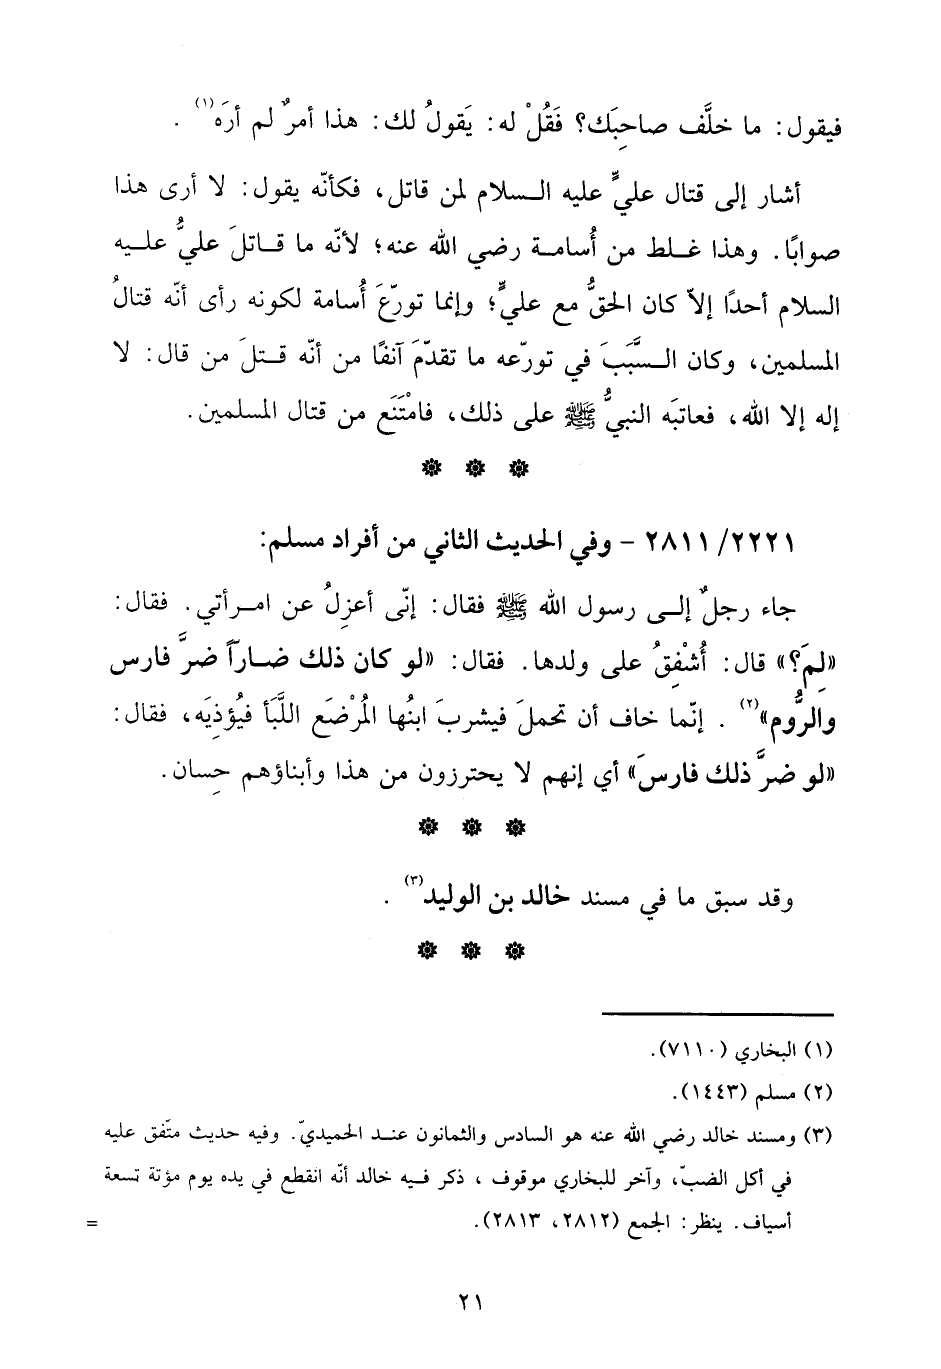 فيقول: ما خلَّف صاحِبَك؟ فَقُلْ له: يَقولُ لك: هذا أمرٌ لم أرَه(١).
أشار إلى قتال عليٍّ عليه السلام لمن قاتل، فكأنّه يقول: لا أرى هذا
صوابًا. وهذا غلط من أُسامة رضي الله عنه؛ لأنّه ما قاتلَ عليُّ عليه
السلام أحدًا إلاّ كان الحقُّ مع عليٍّ؛ وإنما تورّعَ أُسامة لكونه رأى أنّه قتالُ
المسلمين، وكان السَّبَبَ في تورّعه ما تقدّمَ آنفًا من أنّه قتلَ من قال: لا
إله إلا الله، فعاتبَه النبيُّ ﷺ على ذلك، فامْتَنَع من قتال المسلمين.
٢٢٢١/ ٢٨١١ - وفي الحديث الثاني من أفراد مسلم:
جاء رجلٌ إلى رسول الله ﷺ فقال: إنّى أعزِلُ عن امرأتي. فقال:
«لِمَ؟» قال: أُشْفِقُ على ولدها. فقال: «لو كان ذلك ضارًّا ضرَّ فارس
والرُّوم»(٢). إنّما خاف أن تحملَ فيشربَ ابنُها المُرْضَع اللَّبَأ فيُؤذِيَه، فقال:
«لو ضرَّ ذلك فارسَ» أي إنهم لا يحترزون من هذا وأبناؤهم حِسان.
وقد سبق ما في مسند خالد بن الوليد(٣).
(١) البخاري (٧١١٠).
(٢) مسلم (١٤٤٣).
(٣) ومسند خالد رضي الله عنه هو السادس والثمانون عند الحميديّ. وفيه حديث متّفق عليه
في أكل الضبّ، وآخر للبخاري موقوف، ذكر فيه خالد أنّه انقطع في يده يوم مؤتة تسعة
أسياف. ينظر: الجمع (٢٨١٢، ٢٨١٣). =
٢١